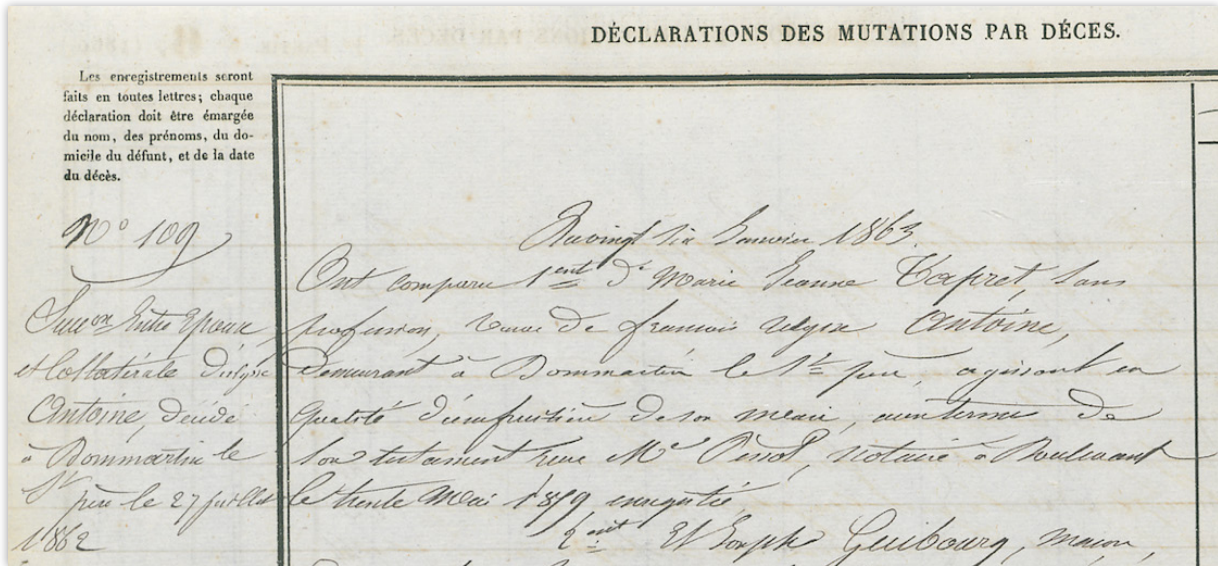 DÉCLARATIONS DES MUTATIONS PAR DÉCES.
Les enregistrements seront
faits en toutes lettres; chaque
déclaration doit être émargée
du nom, des prénoms, du do-
micile du défunt, et de la date
du décès.
N° 109
Succon Entre Epoux,
et Collatérale d'ulysse
Antoine, décédé
à Dommartin le
St père le 27 juillet
1862
Du vingt six Janvier 1863.
Ont comparu 1ent de Marie Jeanne Tapret, sans
profession, veuve de francois ulysse Antoine,
demeurant à Dommartin le St père, agissant en
qualité d'usufruitière de son mari, aux termes de
son testament reçu Me Pissot, notaire à Doulevant
le trente Mai 1859, enregistré,
2ent Et Joseph Guibourg, maçon,